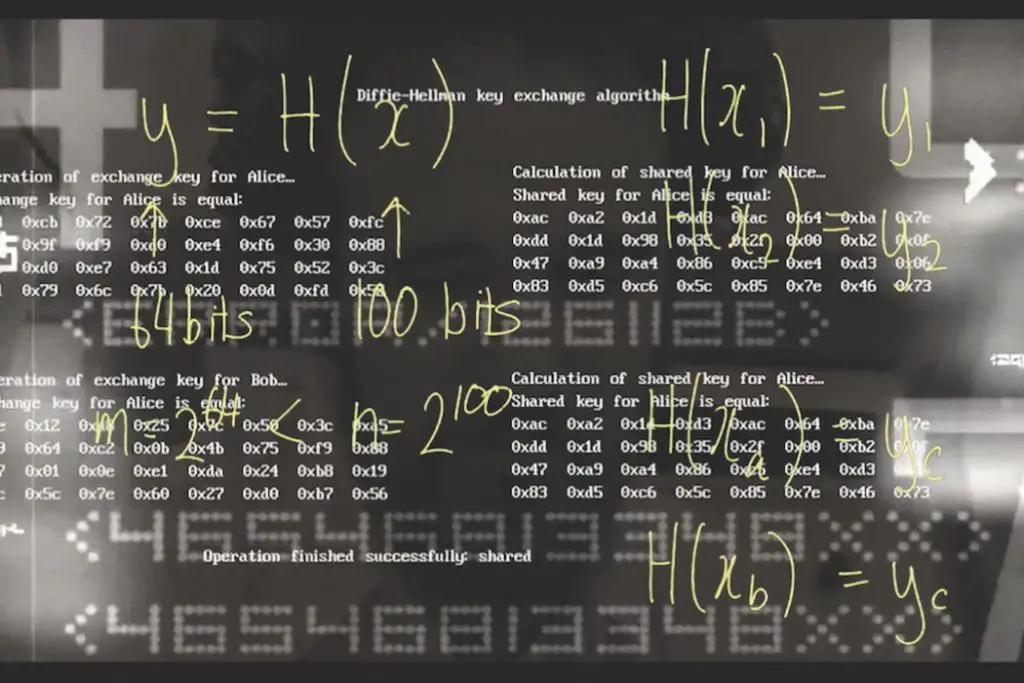 y = H(x)
Diffie-Hellman key exchange algorithm
H(x₁) = y₁
eration of exchange key for Alice...
ange key for Alice is equal:
0xcb 0x72 0x7b 0xce 0x67 0x57 0xfc
0x9f 0xf9 0xd0 0xe4 0xf6 0x30 0x88
0xd0 0xe7 0x63 0x1d 0x75 0x52 0x3c
0x79 0x6c 0x7b 0x20 0x0d 0xfd
Calculation of shared key for Alice...
Shared key for Alice is equal:
0xac 0xa2 0x1d 0xd3 0xac 0x64 0xba 0x7e
0xdd 0x1d 0x98 0x35 0x2f 0x00 0xb2 0x0f
0x47 0xa9 0xa4 0x86 0xc5 0xe4 0xd3 0x06
0x83 0xd5 0xc6 0x5c 0x85 0x7e 0x46 0x73
H(x₂) = y₂
64 bits
100 bits
eration of exchange key for Bob...
ange key for Alice is equal:
0x12 0x25 0x50 0x3c 0xa5
0x64 0xc2 0x0b 0x4b 0x75 0xf9 0x88
0x01 0x0e 0xe1 0xda 0x24 0xb8 0x19
0x5c 0x7e 0x60 0x27 0xd0 0xb7 0x56
m = 2⁶⁴ < n = 2¹⁰⁰
Calculation of shared key for Alice...
Shared key for Alice is equal:
0xac 0xa2 0xd3 0xac 0x64 0xba 0x7e
0xdd 0x1d 0x98 0x35 0x2f 0x00 0xb2 0x0f
0x47 0xa9 0xa4 0x86 0xe4 0xd3
0x83 0xd5 0xc6 0x5c 0x85 0x7e 0x46 0x73
H(xₐ) = y_c
<46546813348××>
Operation finished successfully: shared
H(x_b) = y_c
<46546813348××>